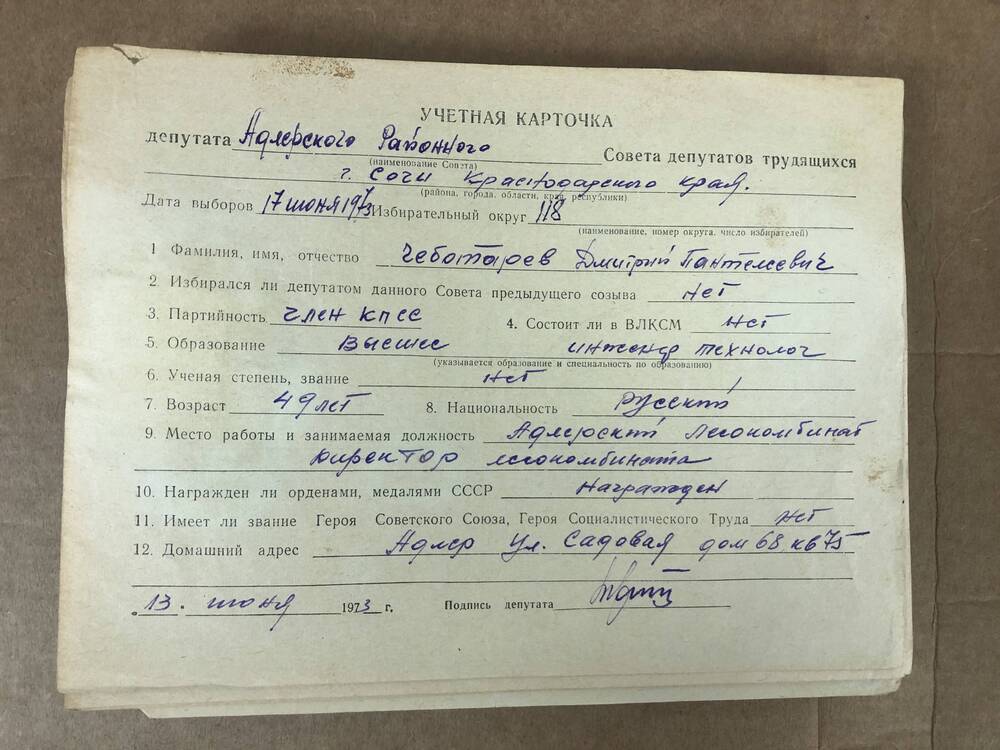 УЧЕТНАЯ КАРТОЧКА
депутата Адлерского Районного Совета депутатов трудящихся
(наименование Совета)
г. Сочи Краснодарского края.
(района, города, области, края, республики)
Дата выборов 17 июня 1973 Избирательный округ 118
(наименование, номер округа, число избирателей)
1 Фамилия, имя, отчество Чеботарев Дмитрий Пантелеевич
2. Избирался ли депутатом данного Совета предыдущего созыва нет
3. Партийность член кпсс 4. Состоит ли в ВЛКСМ нет
5. Образование высшее инженер технолог
(указывается образование и специальность по образованию)
6. Ученая степень, звание нет
7. Возраст 49 лет 8. Национальность русский
9. Место работы и занимаемая должность Адлерский лесокомбинат
директор лесокомбината
10. Награжден ли орденами, медалями СССР награжден
11. Имеет ли звание Героя Советского Союза, Героя Социалистического Труда нет
12. Домашний адрес Адлер ул. Садовая дом 68 кв 75
13. июня 1973 г. Подпись депутата